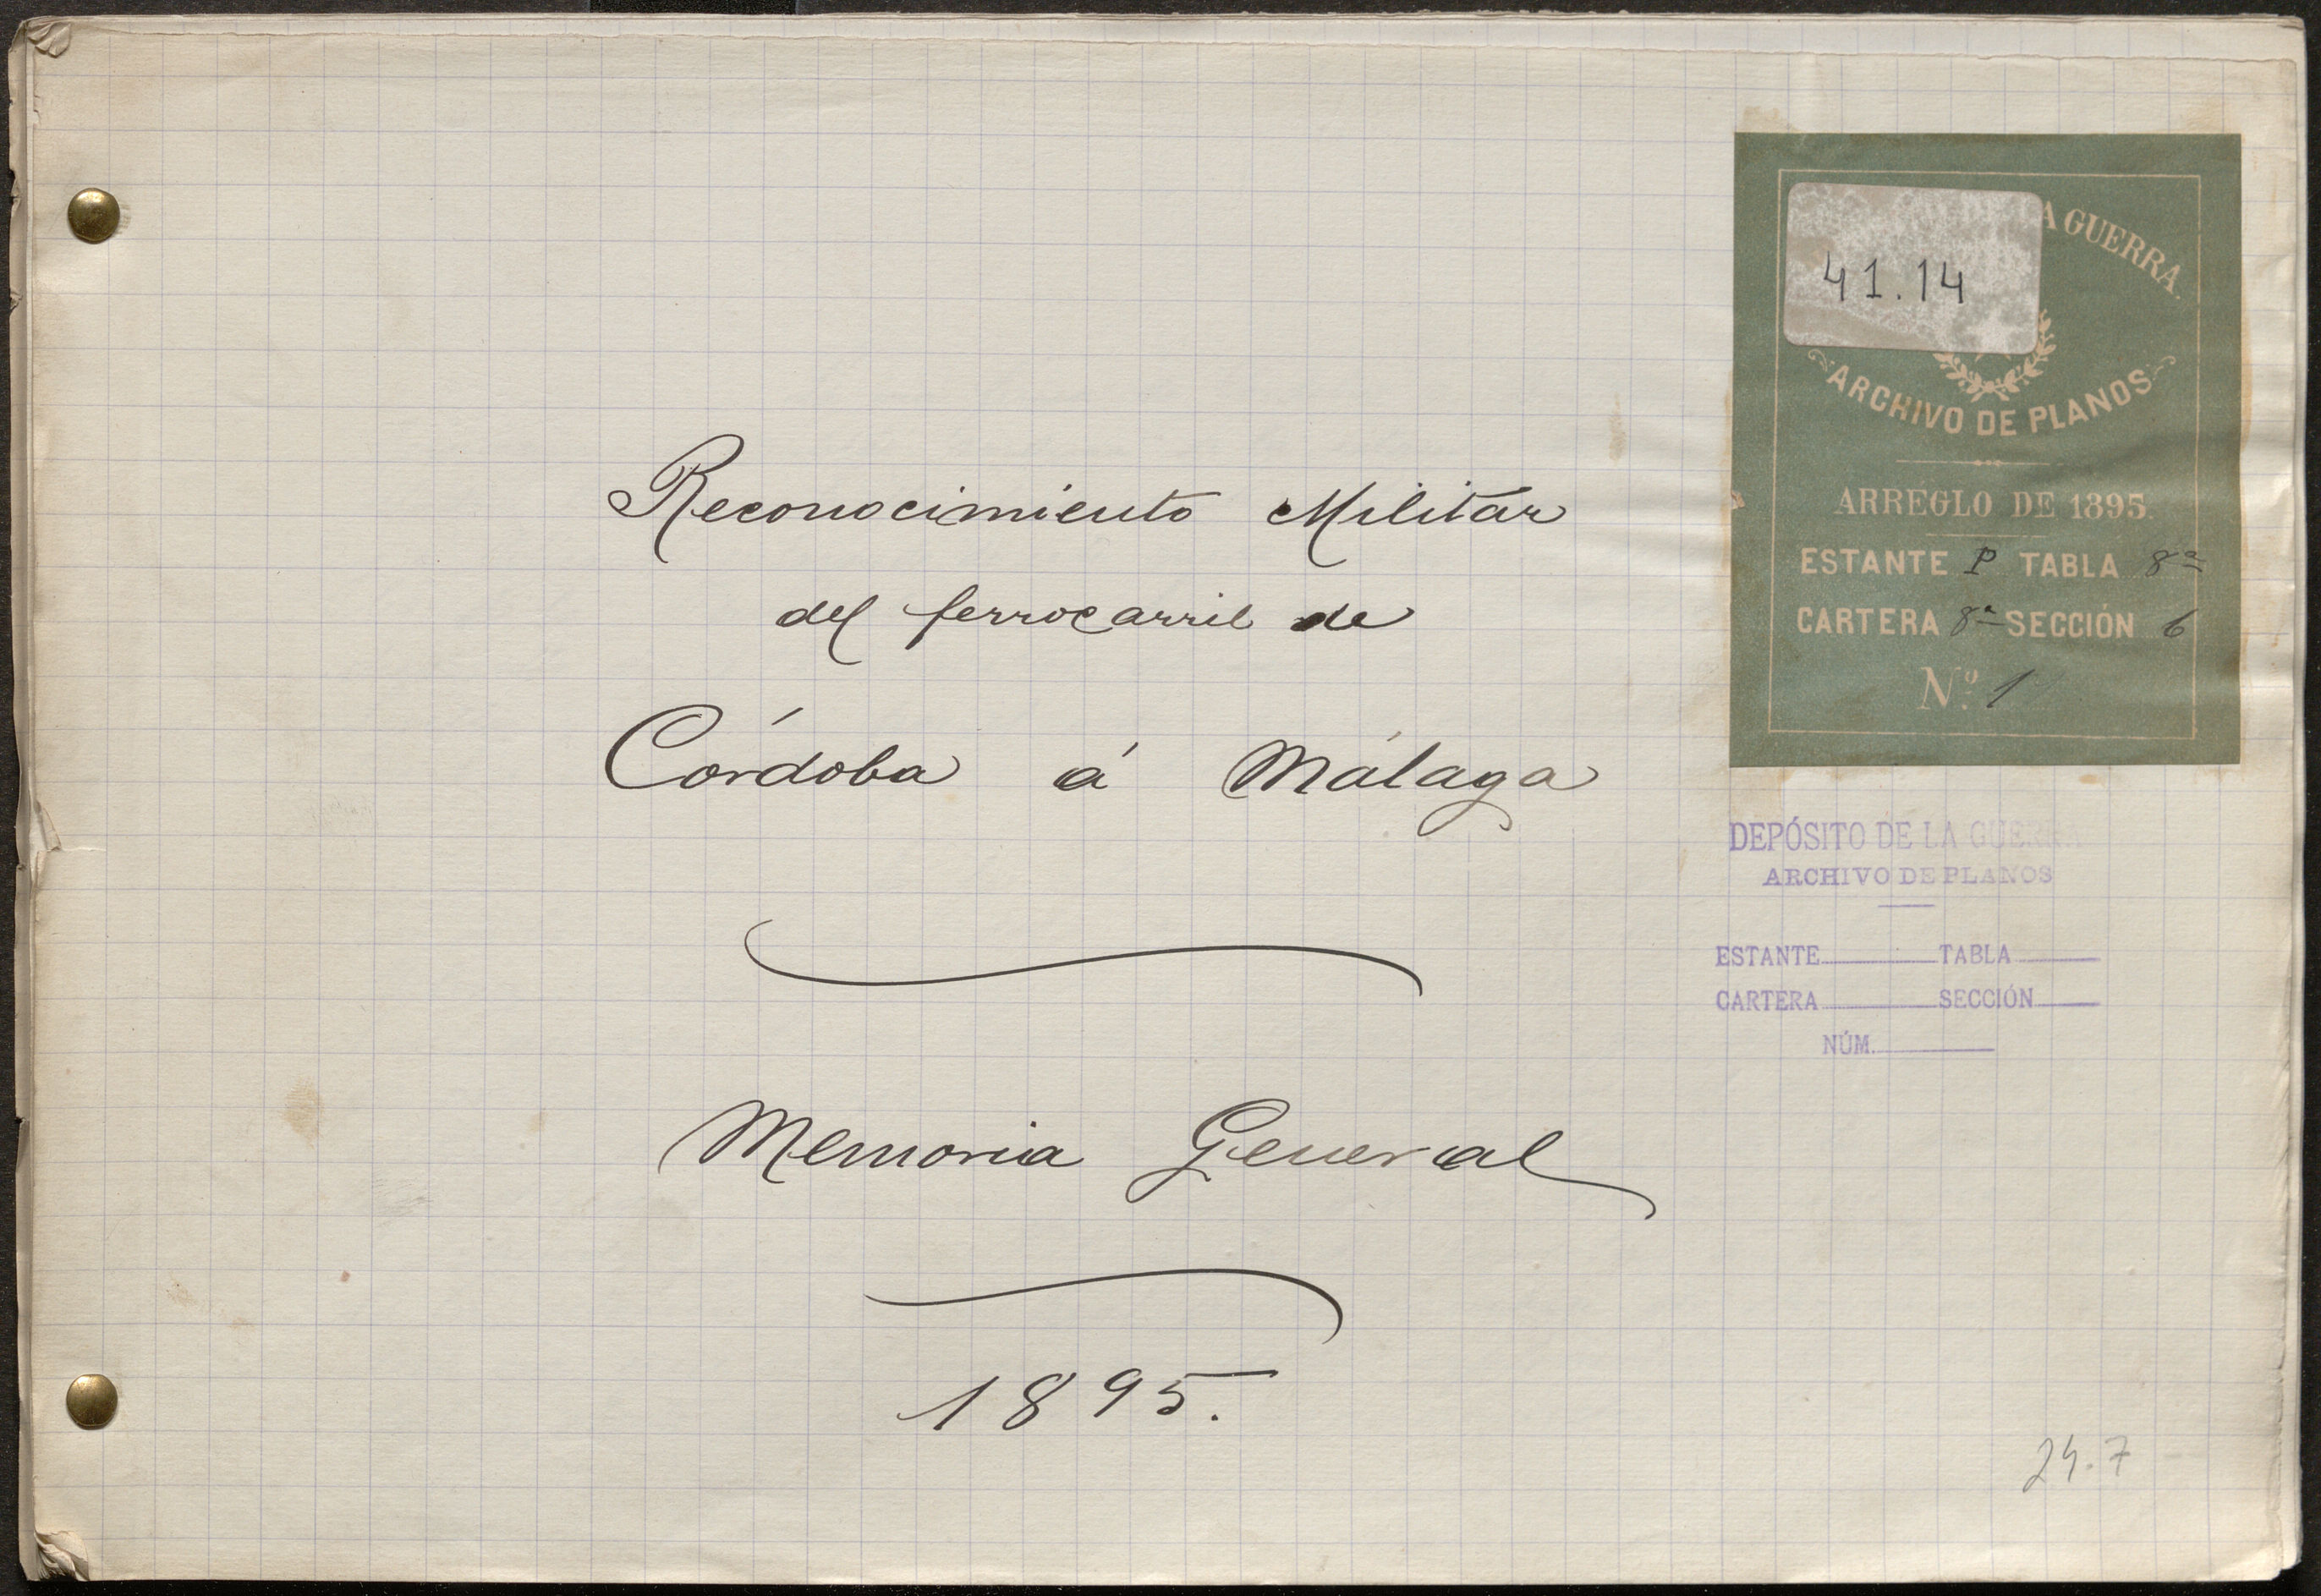 Reconocimiento Militar
del ferrocarril de
Córdoba á Málaga
Memoria General
1895.
A GUERRA.
41.14
ARCHIVO DE PLANOS
ARREGLO DE 1895.
ESTANTE P TABLA 8ª
CARTERA 8ª SECCIÓN 6
Nº. 1
DEPÓSITO DE LA GUERRA
ARCHIVO DE PLANOS
ESTANTE TABLA
CARTERA SECCIÓN
NÚM.
24.7